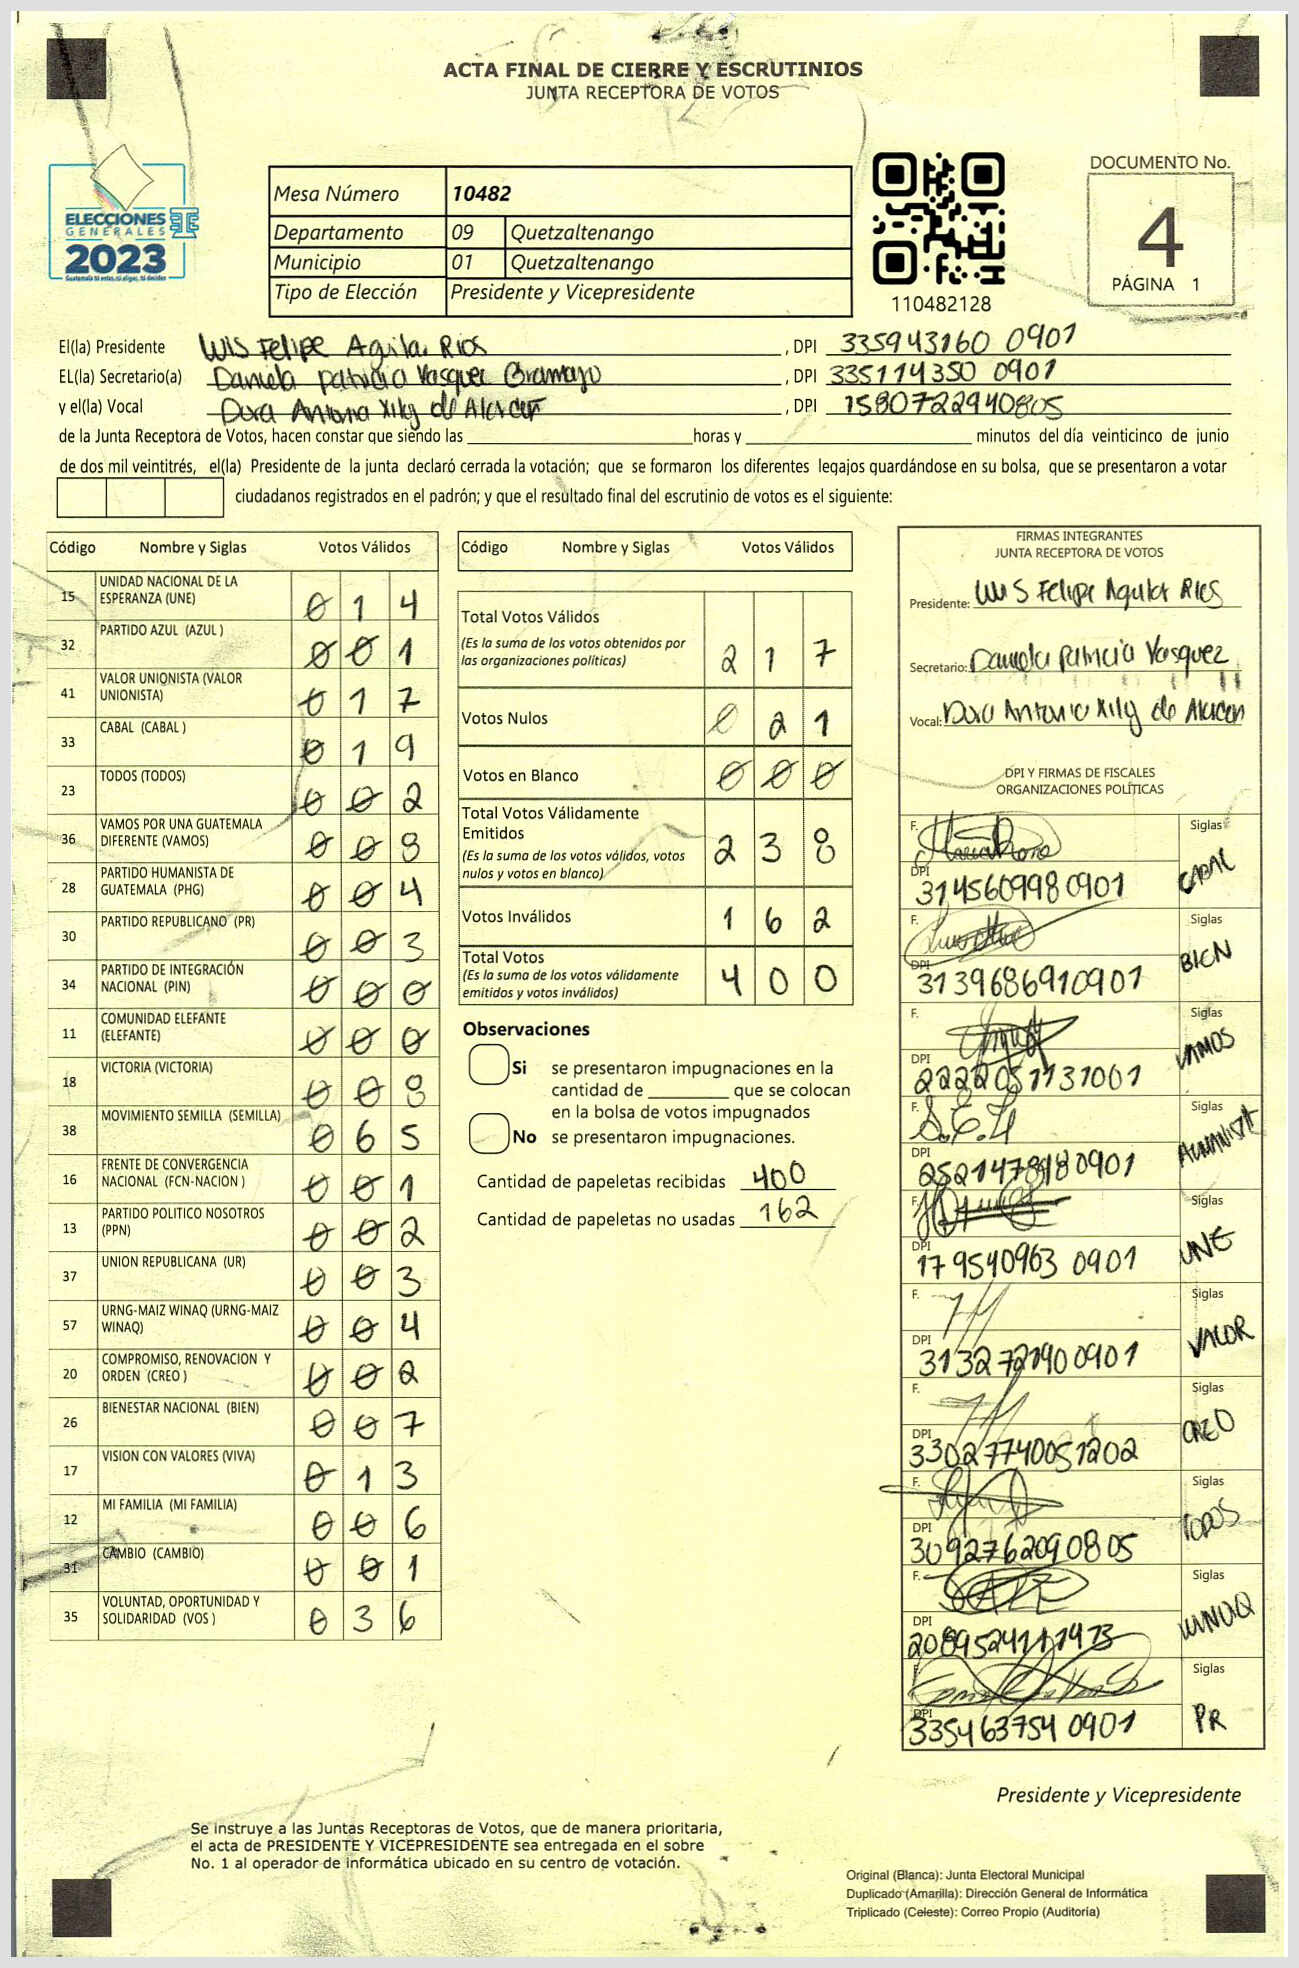 ACTA FINAL DE CIERRE Y ESCRUTINIOS
JUNTA RECEPTORA DE VOTOS
ELECCIONES
GENERALES
2023
Guatemala tú entras, tú eliges, tú decides
Mesa Número 10482
Departamento 09 Quetzaltenango
Municipio 01 Quetzaltenango
Tipo de Elección Presidente y Vicepresidente
110482128
DOCUMENTO No.
4
PÁGINA 1
El(la) Presidente Luis Felipe Aguilar Rios, DPI 335943160 0901
EL(la) Secretario(a) Daniela Patricia Vasquez Bramayo, DPI 335114350 0901
y el(la) Vocal Dora Antonia Xiliy de Alarcon, DPI 1580722940805
de la Junta Receptora de Votos, hacen constar que siendo las horas y minutos del día veinticinco de junio
de dos mil veintitrés, el(la) Presidente de la junta declaró cerrada la votación; que se formaron los diferentes legajos guardándose en su bolsa, que se presentaron a votar
ciudadanos registrados en el padrón; y que el resultado final del escrutinio de votos es el siguiente:
Código Nombre y Siglas Votos Válidos
15 UNIDAD NACIONAL DE LA ESPERANZA (UNE) 0 1 4
32 PARTIDO AZUL (AZUL ) 0 0 1
41 VALOR UNIONISTA (VALOR UNIONISTA) 0 1 7
33 CABAL (CABAL ) 0 1 9
23 TODOS (TODOS) 0 0 2
36 VAMOS POR UNA GUATEMALA DIFERENTE (VAMOS) 0 0 8
28 PARTIDO HUMANISTA DE GUATEMALA (PHG) 0 0 4
30 PARTIDO REPUBLICANO (PR) 0 0 3
34 PARTIDO DE INTEGRACIÓN NACIONAL (PIN) 0 0 0
11 COMUNIDAD ELEFANTE (ELEFANTE) 0 0 0
18 VICTORIA (VICTORIA) 0 0 8
38 MOVIMIENTO SEMILLA (SEMILLA) 0 6 5
16 FRENTE DE CONVERGENCIA NACIONAL (FCN-NACION ) 0 0 1
13 PARTIDO POLITICO NOSOTROS (PPN) 0 0 2
37 UNION REPUBLICANA (UR) 0 0 3
57 URNG-MAIZ WINAQ (URNG-MAIZ WINAQ) 0 0 4
20 COMPROMISO, RENOVACION Y ORDEN (CREO ) 0 0 2
26 BIENESTAR NACIONAL (BIEN) 0 0 7
17 VISION CON VALORES (VIVA) 0 1 3
12 MI FAMILIA (MI FAMILIA) 0 0 6
31 CAMBIO (CAMBIO) 0 0 1
35 VOLUNTAD, OPORTUNIDAD Y SOLIDARIDAD (VOS ) 0 3 6
Código Nombre y Siglas Votos Válidos
Total Votos Válidos 2 1 7
(Es la suma de los votos obtenidos por
las organizaciones políticas)
Votos Nulos 0 2 1
Votos en Blanco 0 0 0
Total Votos Válidamente
Emitidos 2 3 8
(Es la suma de los votos válidos, votos
nulos y votos en blanco)
Votos Inválidos 1 6 2
Total Votos 4 0 0
(Es la suma de los votos válidamente
emitidos y votos inválidos)
Observaciones
Si se presentaron impugnaciones en la
cantidad de que se colocan
en la bolsa de votos impugnados
No se presentaron impugnaciones.
Cantidad de papeletas recibidas 400
Cantidad de papeletas no usadas 162
FIRMAS INTEGRANTES
JUNTA RECEPTORA DE VOTOS
Presidente: Luis Felipe Aguilar Rios
Secretario: Daniela Patricia Vasquez
Vocal: Dora Antonia Xiliy de Alarcon
DPI Y FIRMAS DE FISCALES
ORGANIZACIONES POLÍTICAS
F. Siglas
DPI 314560998 0901 CABAL
F. Siglas
DPI 3139686910901 BIEN
F. Siglas
DPI 2222051131001 VAMOS
F. S.E.H Siglas
DPI 2521478980901 HUMANISTA
F. Siglas
DPI 179540963 0901 UNE
F. Siglas
DPI 3132721900901 VALOR
F. Siglas
DPI 33027740051202 CREO
F. Siglas
DPI 3092762090805 TODOS
F. Siglas
DPI WINAQ
F. Siglas
DPI 335463754 0901 PR
Presidente y Vicepresidente
Se instruye a las Juntas Receptoras de Votos, que de manera prioritaria,
el acta de PRESIDENTE Y VICEPRESIDENTE sea entregada en el sobre
No. 1 al operador de informática ubicado en su centro de votación.
Original (Blanca): Junta Electoral Municipal
Duplicado (Amarilla): Dirección General de Informática
Triplicado (Celeste): Correo Propio (Auditoría)